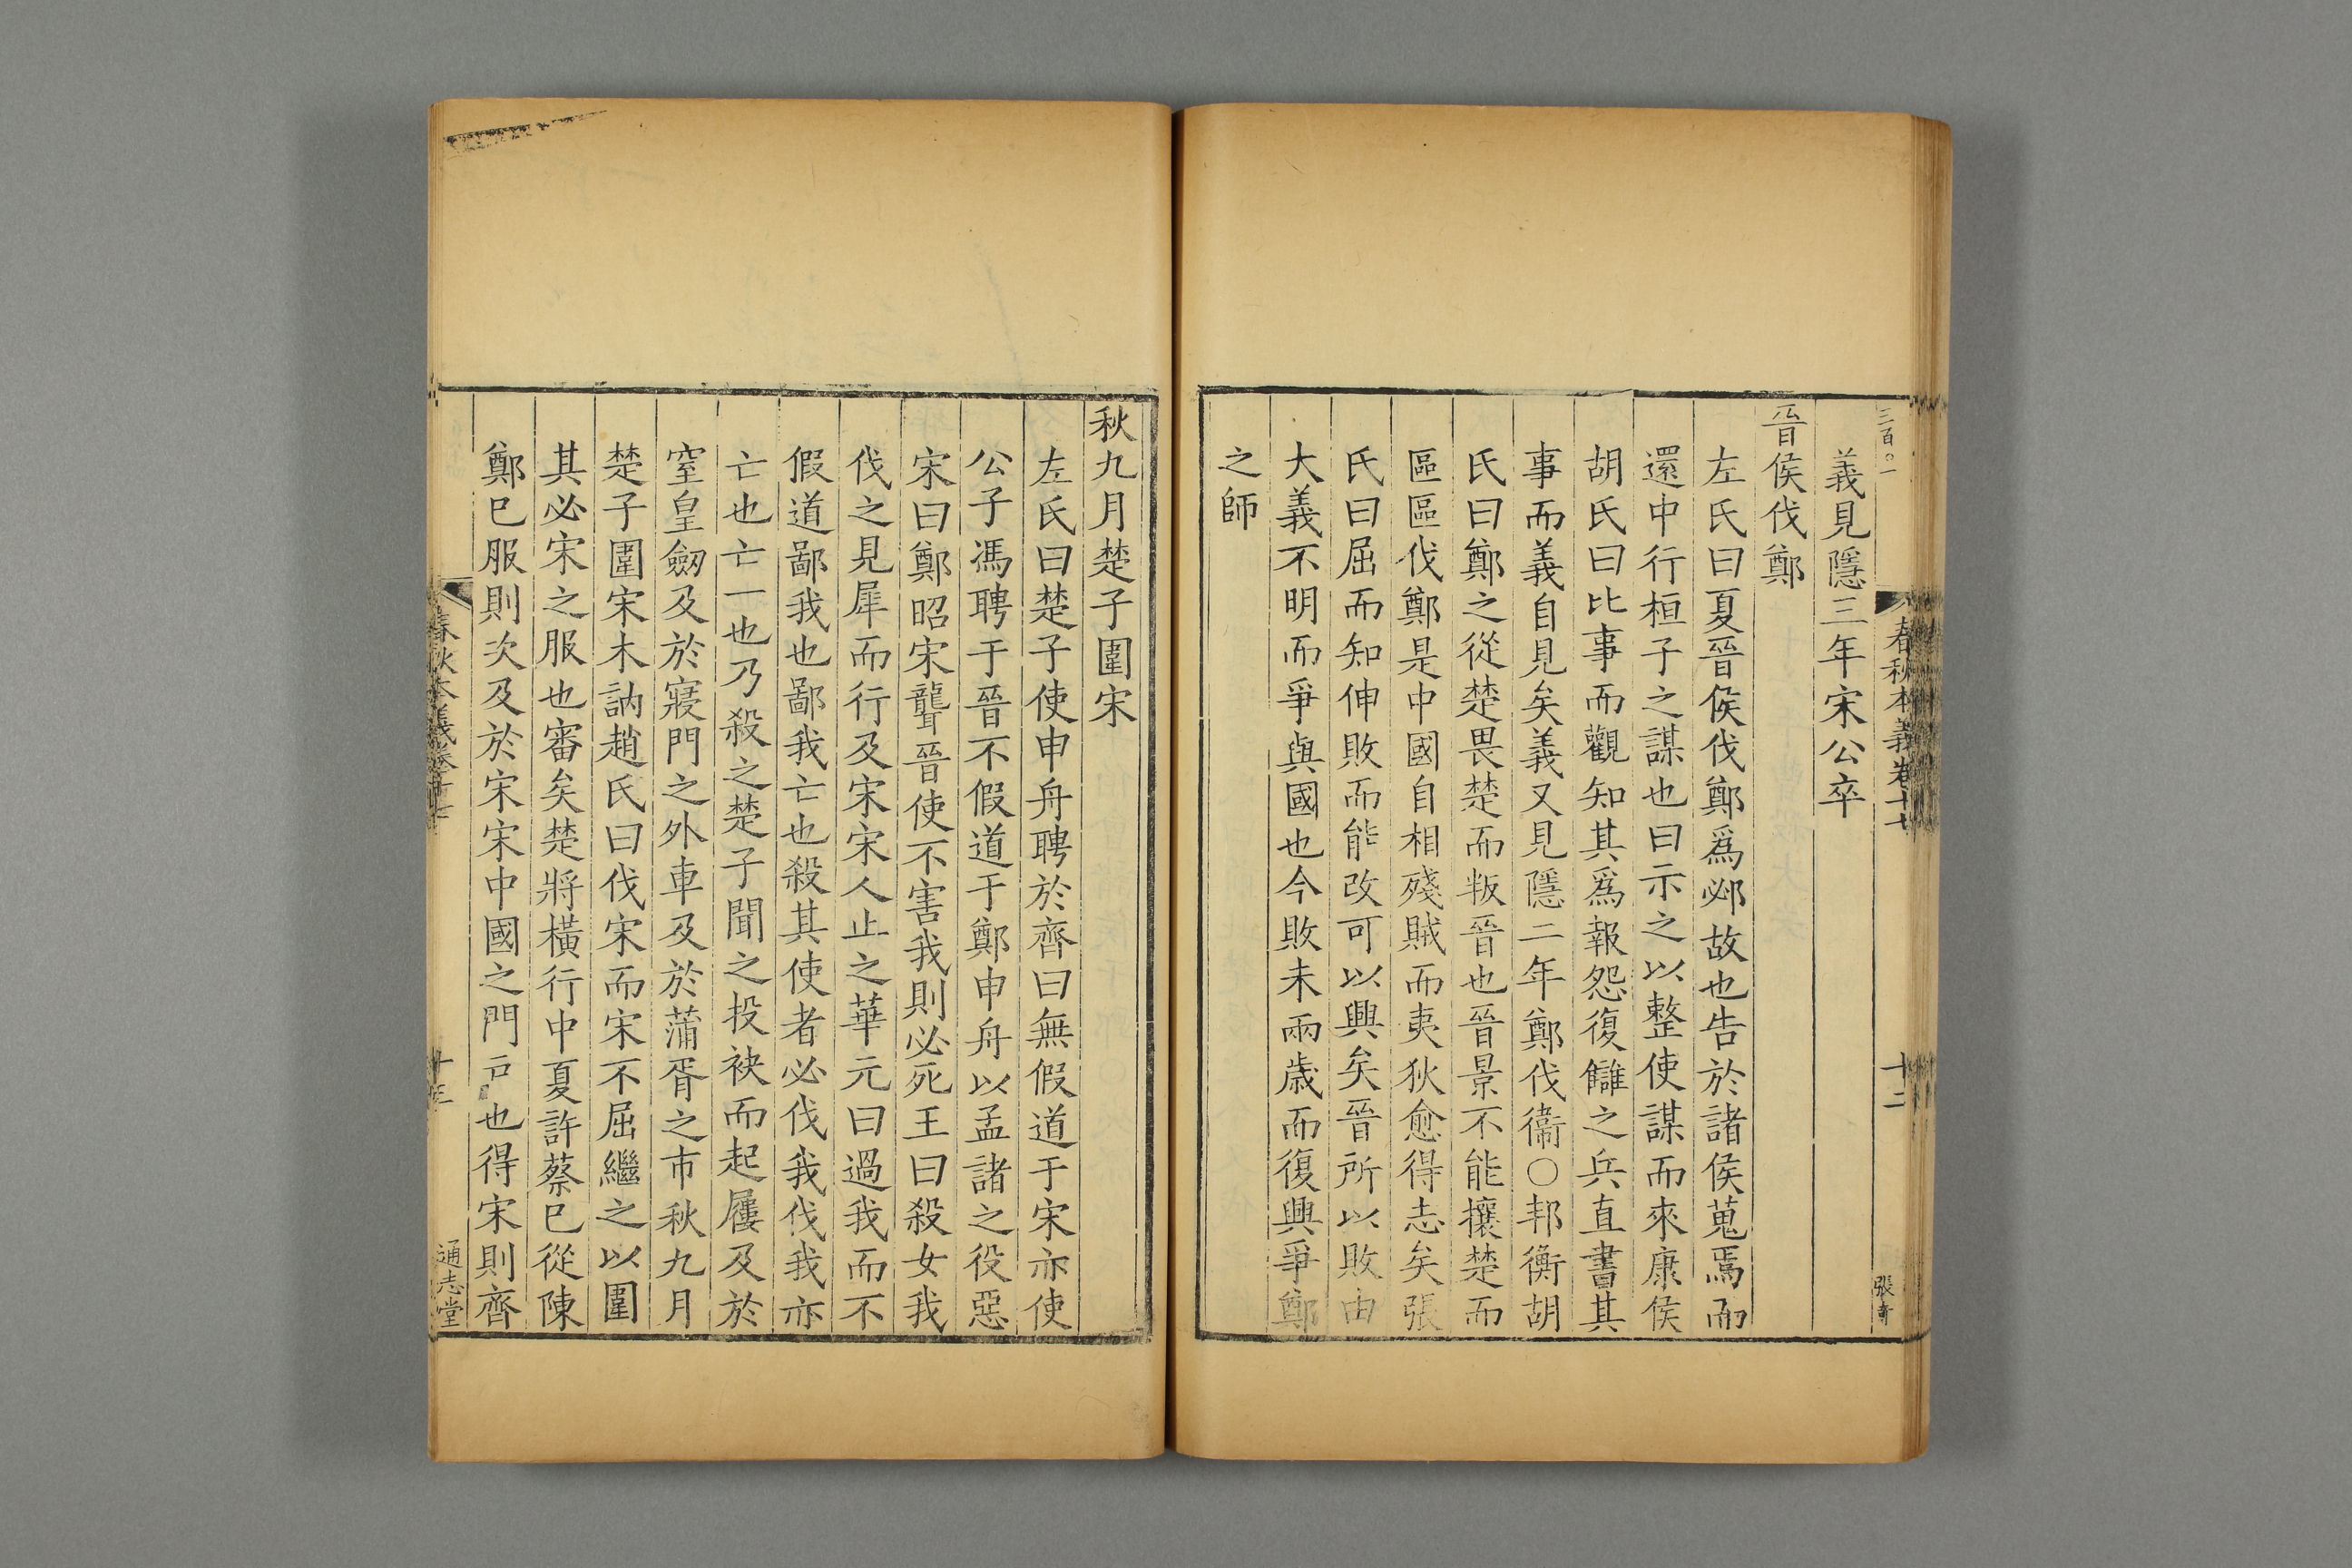 三百〇一
春秋本義卷十七
十二
張奇
義見隱三年宋公卒
晉侯伐鄭
左氏曰夏晉侯伐鄭爲邲故也告於諸侯蒐焉而
還中行桓子之謀也曰示之以整使謀而來康侯
胡氏曰比事而觀知其爲報怨復讎之兵直書其
事而義自見矣義又見隱二年鄭伐衞〇邦衡胡
氏曰鄭之從楚畏楚而叛晉也晉景不能攘楚而
區區伐鄭是中國自相殘賊而夷狄愈得志矣張
氏曰屈而知伸敗而能改可以興矣晉所以敗由
大義不明而爭與國也今敗未兩歳而復興爭鄭
之師
秋九月楚子圍宋
左氏曰楚子使申舟聘於齊曰無假道于宋亦使
公子馮聘于晉不假道于鄭申舟以孟諸之役惡
宋曰鄭昭宋聾晉使不害我則必死王曰殺女我
伐之見犀而行及宋宋人止之華元曰過我而不
假道鄙我也鄙我亡也殺其使者必伐我伐我亦
亡也亡一也乃殺之楚子聞之投袂而起屨及於
窒皇劒及於寢門之外車及於蒲胥之市秋九月
楚子圍宋木訥趙氏曰伐宋而宋不屈繼之以圍
其必宋之服也審矣楚將橫行中夏許蔡已從陳
鄭已服則次及於宋宋中國之門戸也得宋則齊
春秋本義卷十七
通志堂